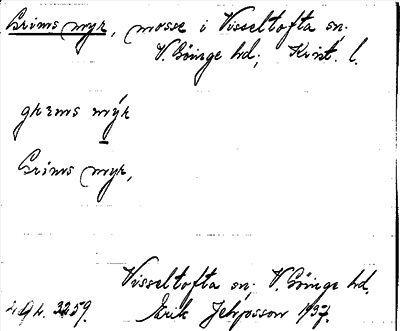 Grims myr, mosse i Visseltofta sn.
V. Göinge hd; Krist. l.
grems mýr
Grims myr,
Visseltofta sn. V. Göinge hd.
Erik Jeppsson 1937.